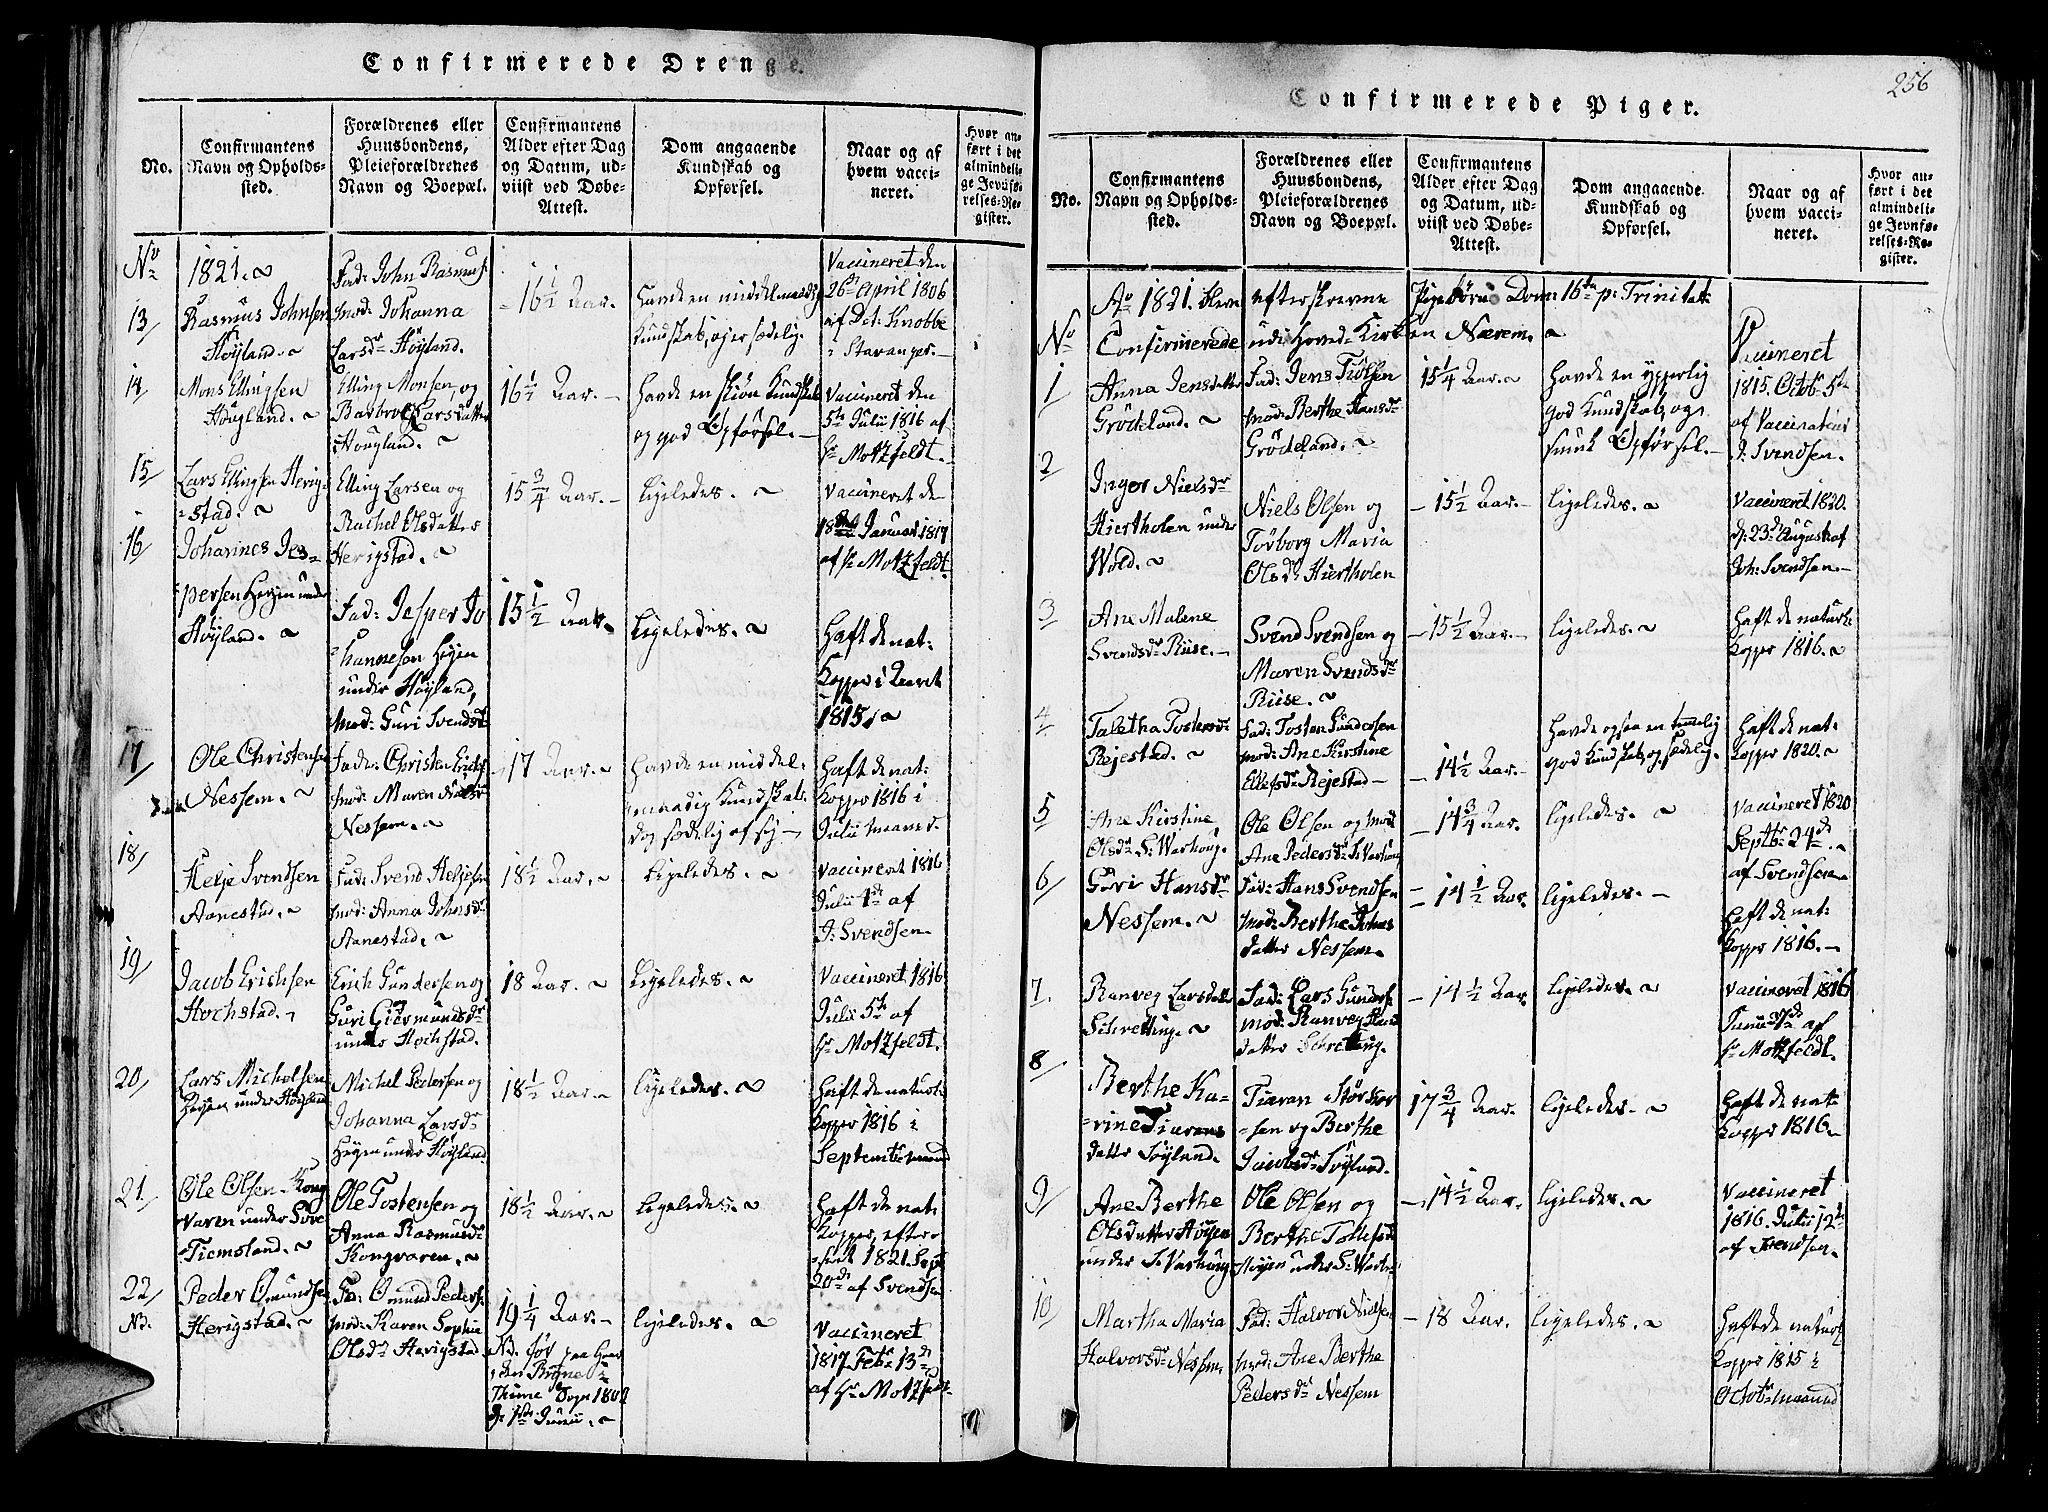 Confirmerede Drenge.
No.
Confirmantens
Navn og Opholds-
sted.
Forældrenes eller
Huusbondens,
Pleieforældrenes
Navn og Boepæl.
Confirmantens
Alder efter Dag
og Datum, ud-
viist ved Døbe-
Attest.
Dom angaaende
Kundskab og
Opførsel.
Naar og af
hvem vacci-
neret.
Hvor an-
ført i det
almindeli-
ge Jevnfø-
relses-Re-
gister.
No
1821.
13/
Rasmus Johnsen
Höyland.
Fad: John Rasmus:
mod: Johanna
Larsdr Höyland.
16½ Aar.
Havde en middelmaadig
Kundskab, og er sædelig.
Vaccineret den
26de April 1806
af Dct: Knobbe
i Stavanger.
14/
Mons Ellingsen
Höugland.
Elling Monsen, og
Barbro Larsdatter
Höugland.
16½ Aar.
Havde en skiön Kundskab
og god Opförsel.
Vaccineret den
5te Julii 1816 af
Hr Motzfeldt.
15/
Lars Ellingsen Herig-
stad.
Elling Larsen og
Rachel Olsdatter
Herigstad.
15¾ Aar.
Ligeledes.
Vaccineret de
18de Januar 1817
af Hr Motzfeldt.
16/
Johannes Jes-
persen Heyen under
Höyland.
Fad: Jesper Jo
hannesen Heyen
under Höyland,
mod: Guri Svendsdr
15½ Aar.
Ligeledes.
Haft de nat:
Kopper i Aaret
1815.
17/
Ole Christensen
Nessem.
Fader: Christen Erichs:
mod: Maren Nielsdr
Nessem.
17 Aar.
Havde en middel-
maadig Kundskab
og sædelig af sig.
Haft de nat:
Kopper 1816 i
Julii maaned.
18/
Helje Svendsen
Aanestad.
Fad: Svend Heljesen
mod: Anna Johnsdr
Aanestad.
18½ Aar.
Ligeledes.
Vaccineret 1816
Julii 1de af
J: Svendsen.
19/
Jacob Erichsen
Hochstad.
Erich Gundersen og
Guri Giermundsdr
under Hochstad.
18 Aar.
Ligeledes.
Vaccineret 1816
Julii 5te af
Hr Motzfeldt.
20/
Lars Michelsen
Heyen under Höyland
Michel Pedersen og
Johanna Larsdr
Heyen under Höyland.
18½ Aar.
Ligeledes.
Haft de naturl:
Kopper 1816 i
Septembr maaned
21/
Ole Olsen Kong
varen under Sör
Tiemsland.
Ole Tostensen og
Anna Rasmusdr
Kongvaren.
18½ Aar.
Ligeledes.
Haft de nat:
Kopper, efter-
1821. Sept
20de af Svendsen
22/
Nb.
Peder Omundsen
Herigstad.
Fa: Omund Peders:
mod: Karen Sophia
Olsdr Herigstad.
19¼ Aar.
Nb. för paa Gaar
den Bryne i
Thime Sogn 1802
d: 1ste Junii.
Ligeledes.
Vaccineret
1817 Febr 13de
af Hr Motzfeldt.
256
Confirmerede Piger.
No.
Confirmantens
Navn og Opholds-
sted.
Forældrenes eller
Huusbondens,
Pleieforældrenes
Navn og Boepæl.
Confirmantens
Alder efter Dag
og Datum, ud-
viist ved Døbe-
Attest.
Dom angaaende
Kundskab og
Opførsel.
Naar og af
hvem vacci-
neret.
Hvor an-
ført i det
almindeli-
ge Jevnfø-
relses-Re-
gister.
Ao 1821. bleve efterskrevne Pigebörn Dom: 16de p: Trinitat:
No
Confirmerede udi Hoved-Kirken Nærem.
1/
Anna Jensdatter
Grödeland.
Fad: Jens Trölsen
mod: Berthe Hansdr
Grödeland.
15¼ Aar.
Havde en ypperlig
god Kundskab, og
smuk Opförsel.
Vaccineret
1815. Octobr 5te
af Vaccinateur
J: Svendsen.
2
Inger Nielsdr
Hiertholen under
Wold.
Niels Olsen og
Torborg Maria
Olsdr Hiertholen
15½ Aar.
Ligeledes.
Vaccineret 1820.
d: 23de August af
Joh: Svendsen.
3
Ane Malene
Svendsdr Riise.
Svend Svendsen og
Maren Svendsdr
Riise.
15½ Aar.
Ligeledes.
Haft de naturl:
Kopper 1816.
4
Taletha Tostensdr
Rejestad.
Fad: Tosten Gundersen
mod: Ane Kirstine
Ellefsdr Rejestad
14½ Aar.
Havde ogsaa en temmelig
god Kundskab, og sædelig.
Haft de nat:
Kopper 1820.
5
Ane Kirstine
Olsdr S: Warhoug.
Ole Olsen og mod
Ane Pedersdr S: Varhoug
14¾ Aar.
Ligeledes.
Vaccineret 1820
Septbr 24de
af Svendsen
6/
Guri Hansdr
Nessem.
Fad: Hans Svendsen
mod: Berthe Johns
datter Nessem.
14½ Aar.
Ligeledes.
Haft de nat:
Kopper 1816.
7.
Ranveg Larsdatter
Schretting.
Fad: Lars Gunders:
mod: Ranveg
datter Schretting.
14½ Aar
Ligeledes.
Vaccineret 1816
af
Hr Motzfeldt.
8/
Berthe Ka-
rine Tiarans
datter Söyland.
Tiaran Störkor
sen og Berthe
Jacobsdr Söyland.
17¾ Aar.
Ligeledes.
Haft de nat:
Kopper 1816.
9/
Ane Berthe
Olsdatter Höyen
under S: Varhoug
Ole Olsen og
Berthe Tollefsdr
Höyen under S: Warh:
14½ Aar.
Ligeledes.
Vaccineret
1816. Julii 12te
af Svendsen.
10/
Martha Maria
Halvorsdr Nessem.
Fad: Halvor Nielsen
mod: Ane Berthe
Pedersdr Nessem
18 Aar.
Ligeledes.
Haft de naturl
Kopper 1815 i
Octobr maaned